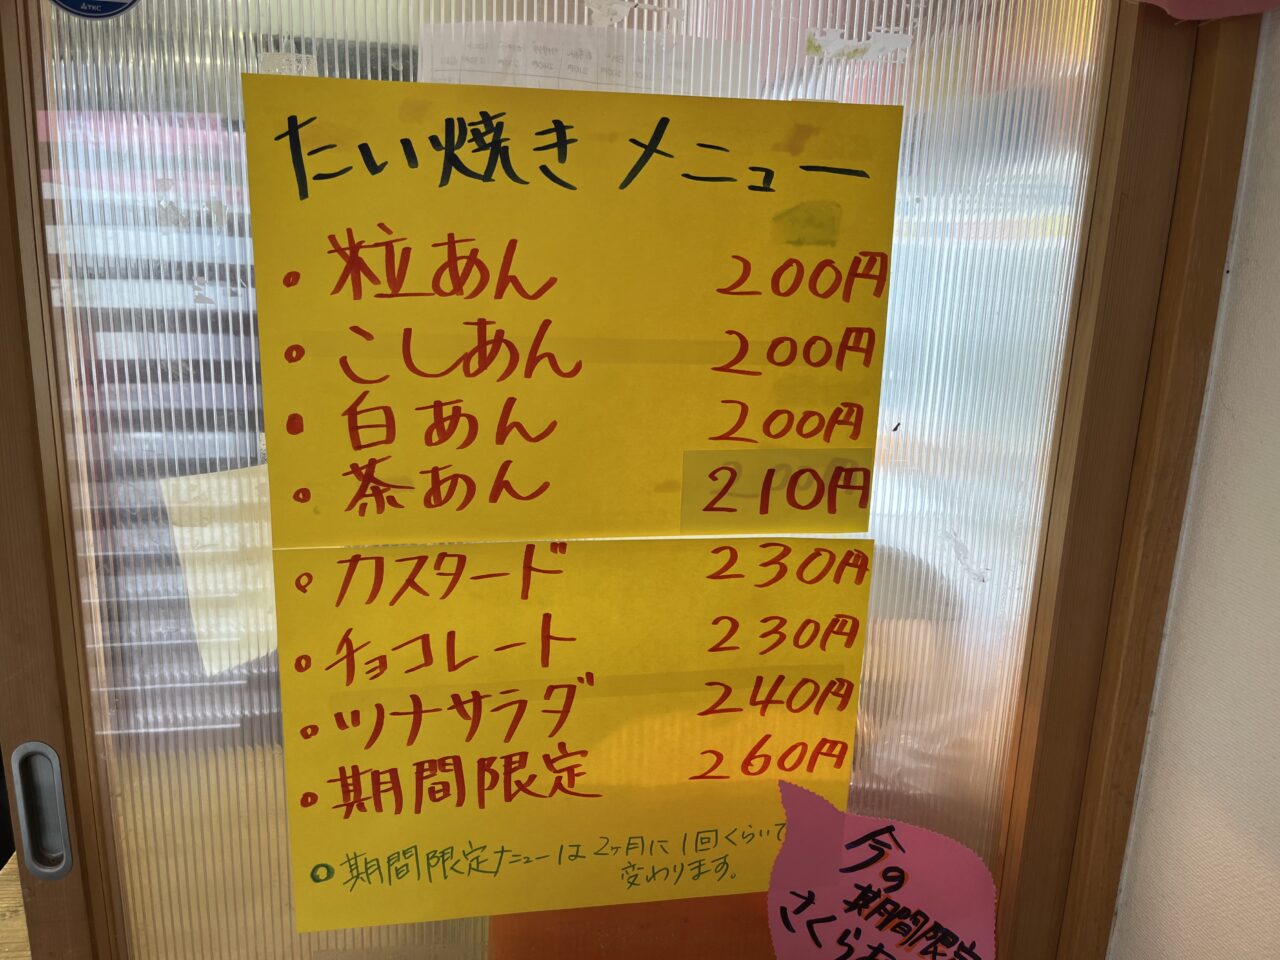 たい焼き メニュー
・粒あん 200円
・こしあん 200円
・白あん 200円
・茶あん 210円
・カスタード 230円
・チョコレート 230円
・ツナサラダ 240円
・期間限定 260円
○期間限定メニューは2ヶ月に1回くらいで
変わります。
今の
期間限定
さくらあ
TKC